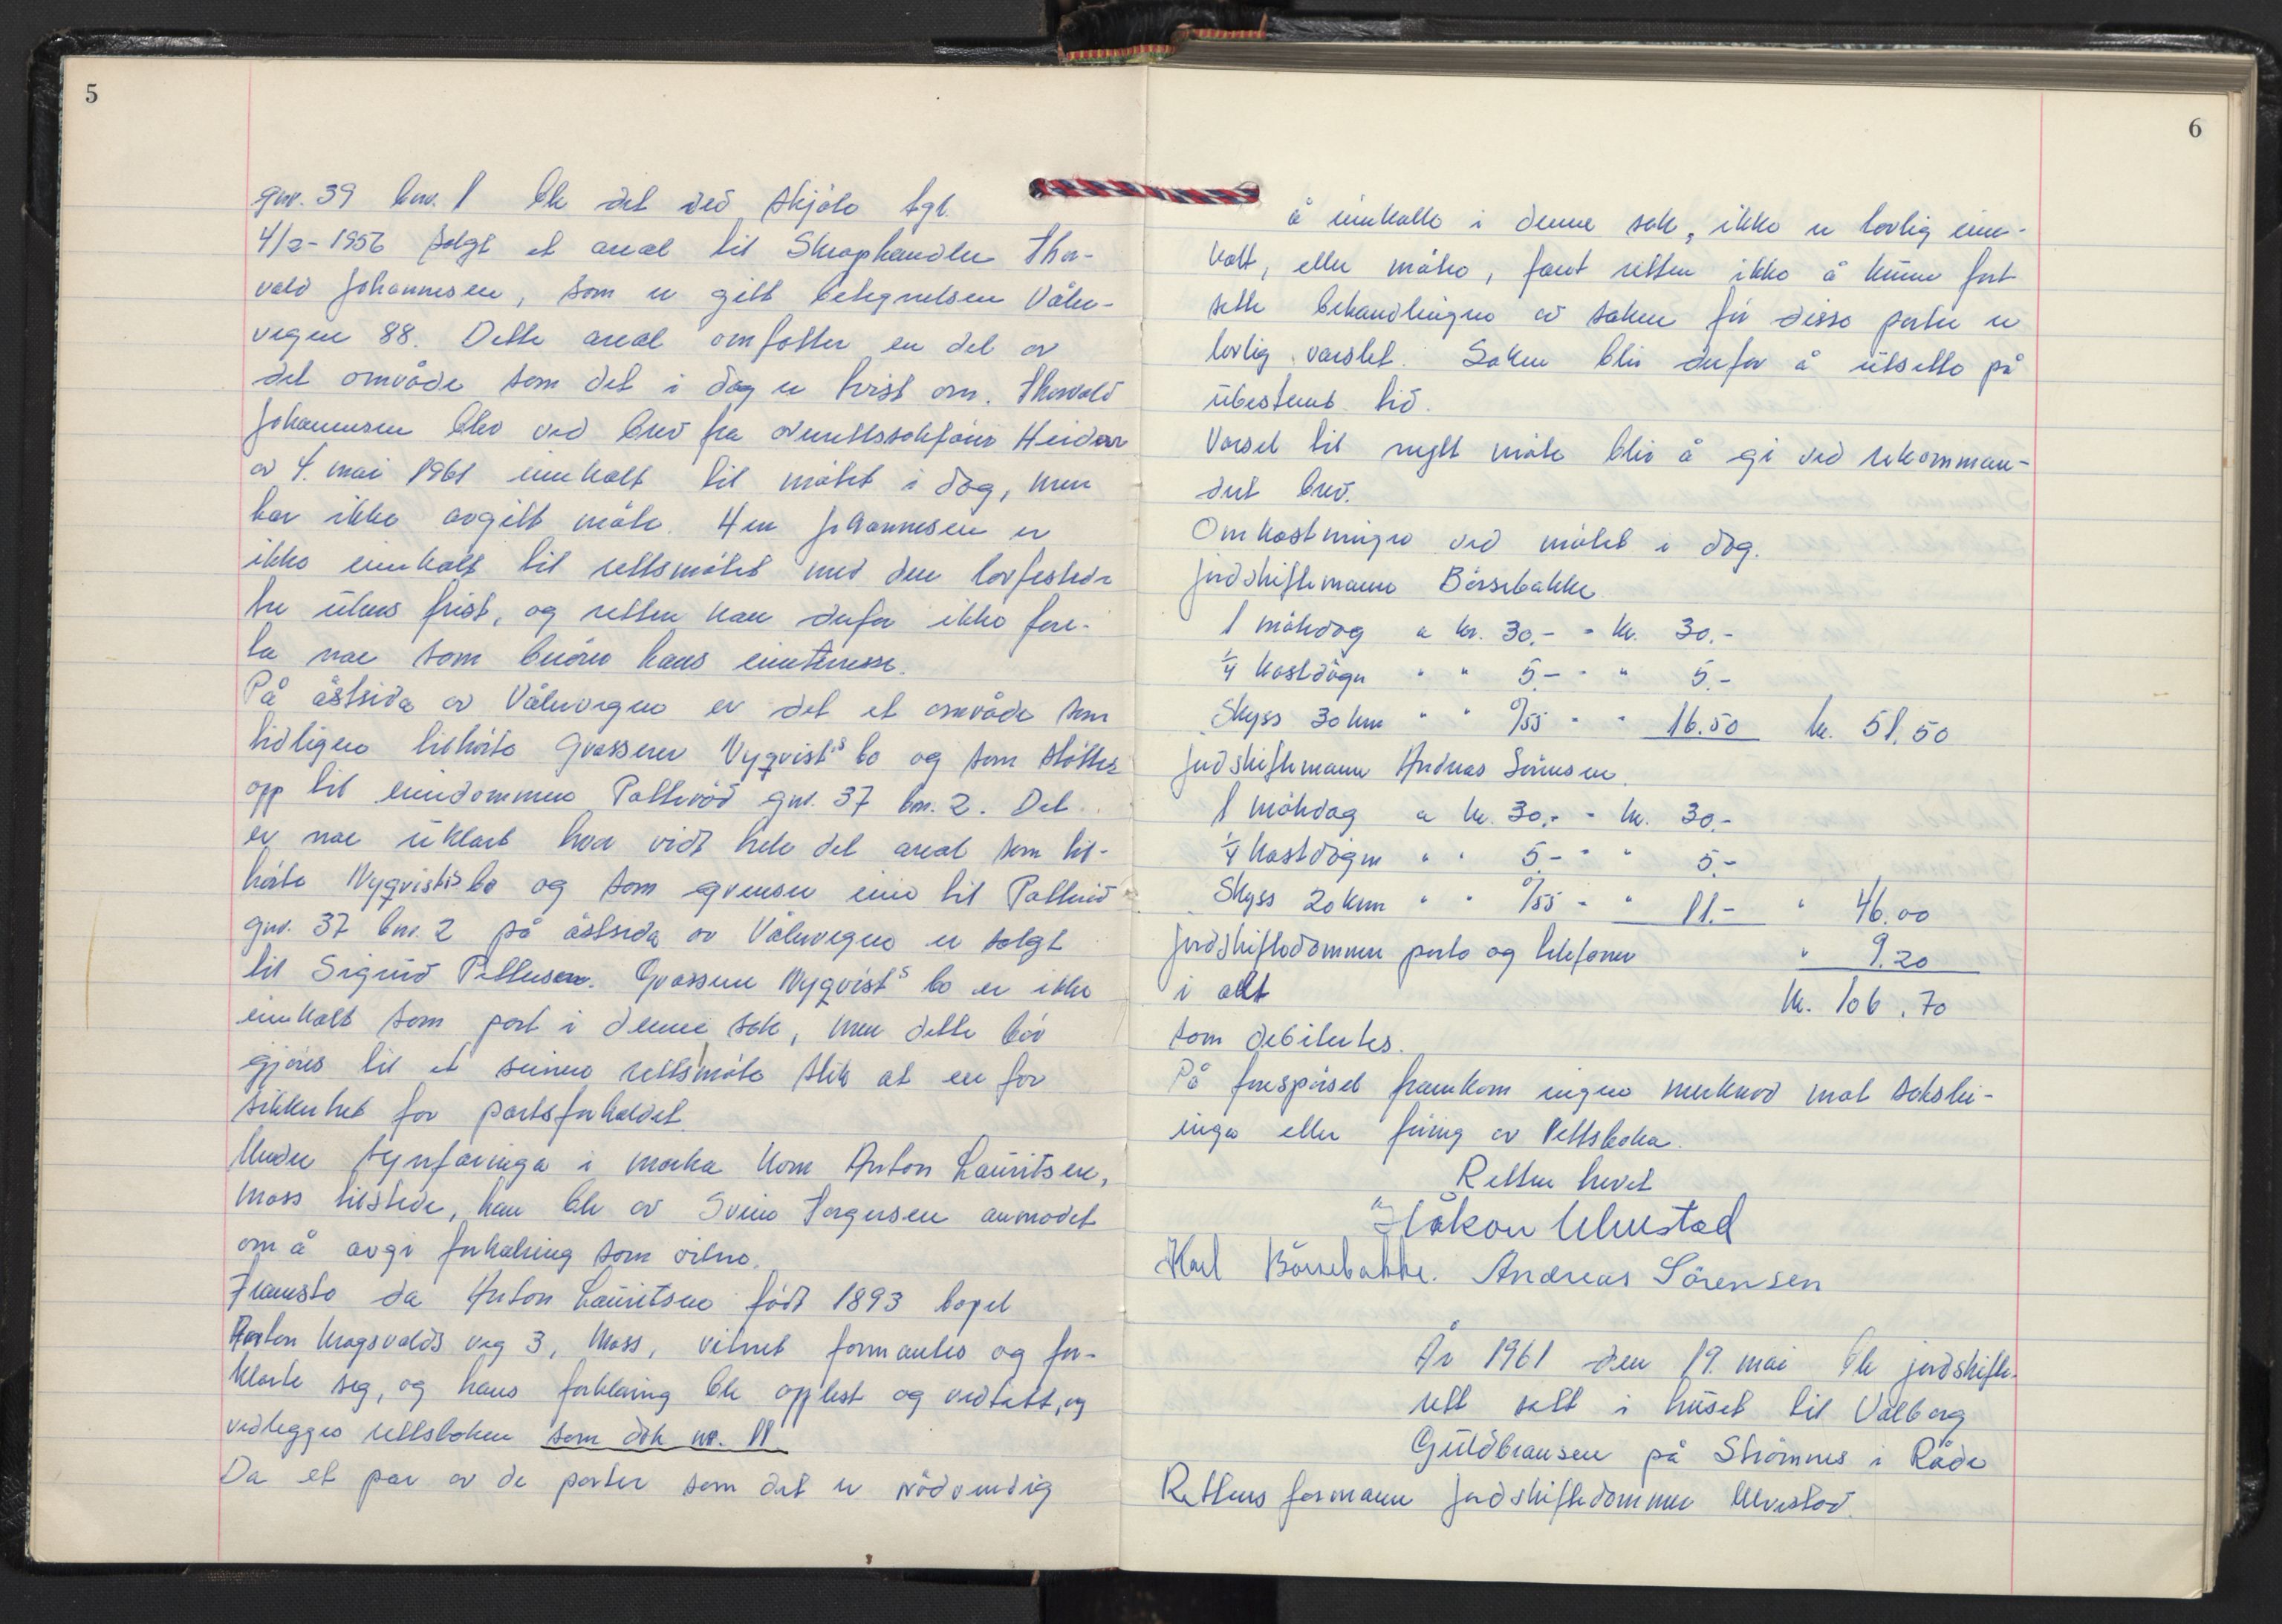 5
gnr. 39 bnr. 1 ble det ved skjøte tgl.
4/2-1956 solgt et areal til Skraphandler Thor-
vald Johannesen, som er gitt betegnelsen Våler-
vegen 88. Dette areal omfatter en del av
det område som det i dag er tvist om. Thorvald
Johannesen blev ved brev fra overrettssakfører Heidar
av 4. mai 1961 innkalt til møtet i dag, men
har ikke avgitt møte. Herr Johannesen er
ikke innkalt til rettsmøtet med den lovfestede
tre ukers frist, og retten kan derfor ikke fore-
ta noe som berører hans interesse.
På østsida av Vålervegen er det et område som
tidligere tilhørte Grosserer Nyqvist's bo og som støtter
opp til eiendommen Patterød gnr. 37 bnr. 2. Det
er noe uklart hvor vidt hele det areal som til-
hørte Nyqvist's bo og som grenser inn til Patterød
gnr. 37 bnr. 2 på østsida av Vålervegen er solgt
til Sigurd Pettersen. Grosserer Nyqvist's bo er ikke
innkalt som part i denne sak, men dette bør
gjøres til et seinere rettsmøte slik at en får
sikkerhet for partsforholdet.
Under synfaringa i marka kom Anton Lauritsen,
Moss tilstede, han ble av Svein Torgersen anmodet
om å avgi forklaring som vitne.
Framsto da Anton Lauritsen født 1893 bopel
Anton Krogsvolds veg 3, Moss, vitnet formantes og for-
klarte seg, og hans forklaring ble opplest og vedtatt, og
vedlegges rettsboken som dok nr. 11
Da et par av de parter som det er nødvendig
6
å innkalle i denne sak, ikke er lovlig inn-
kalt, eller møtt, fant retten ikke å kunne fort
sette behandlingen av saken før disse parter er
lovlig varslet. Saken blir derfor å utsette på
ubestemt tid.
Varsel til nytt møte blir å gi ved rekomman-
dert brev.
Omkostninger ved møtet i dag.
jordskiftemann Børsebakke
1 møtedag a kr. 30.- = kr. 30.-
1/4 kostdøgn " " 5.- " " 5.-
Skyss 30 km " " 0/55 " " 16.50 kr. 51,50
Jordskiftemann Andreas Sørensen.
1 møtedag a kr. 30.- = kr. 30.-
1/4 kostdøgn " " 5.- " " 5.-
Skyss 20 km " " 0/55 - " 11.- " 46.00
Jordskiftedommer porto og telefoner " 9.20
i alt kr. 106.70
som debiteres.
På forespørsel framkom ingen merknad mot saksbe-
inga eller føring av rettsboka.
Retten hevet
Håkon Ulvestad
Karl Børsebakke. Andreas Sørensen
År 1961 den 19. mai ble jordskifte-
rett satt i huset til Valborg
Guldbransen på Strømnes i Råde
Rettens formann jordskiftedommer Ulvestad.